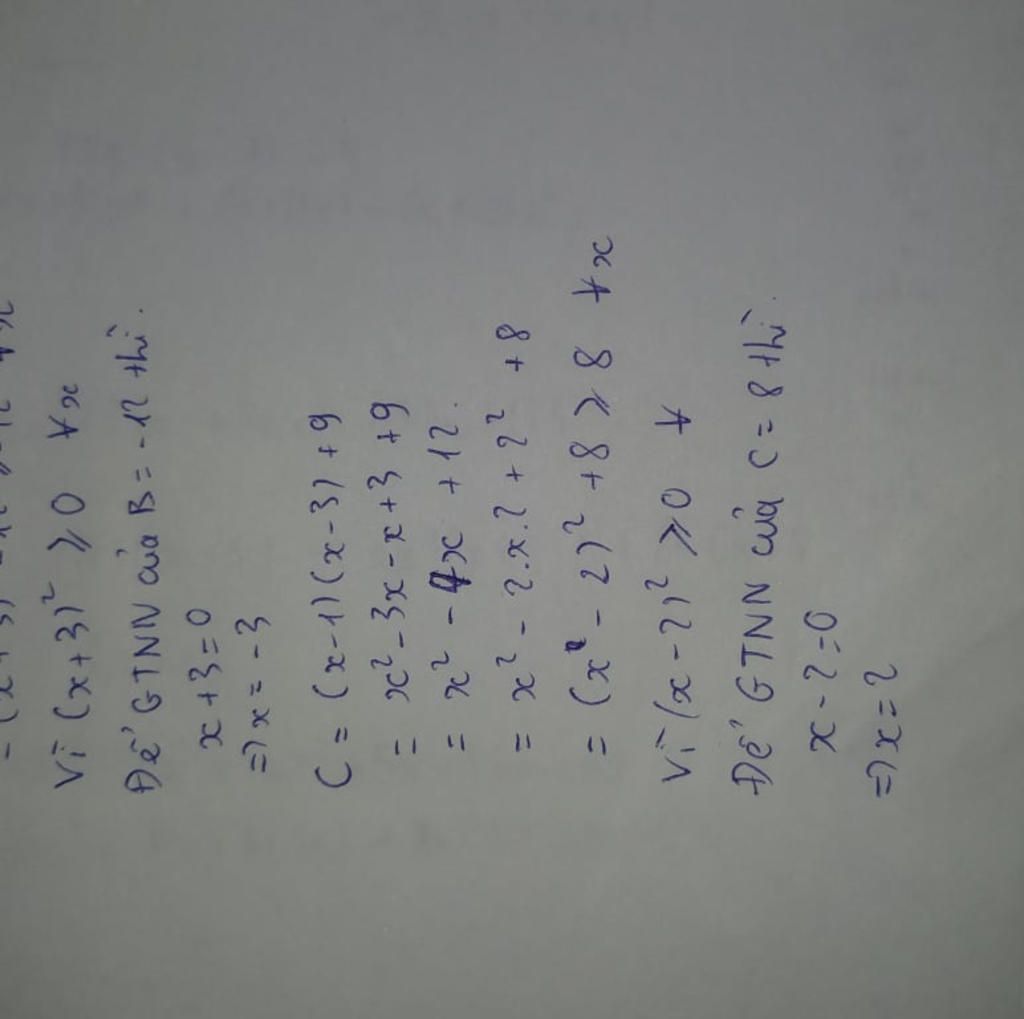 Vì (x+3)² ≥ 0 ∀x
Để GTNN của B = -12 thì.
x+3=0
=> x = -3
C = (x-1)(x-3) +9
= x² - 3x - x + 3 + 9
= x² - 4x + 12.
= x² - 2.x.2 + 2² + 8
= (x - 2)² + 8 ≥ 8 ∀x
Vì (x-2)² ≥ 0 ∀
Để GTNN của C = 8 thì.
x - 2 = 0
=> x = 2